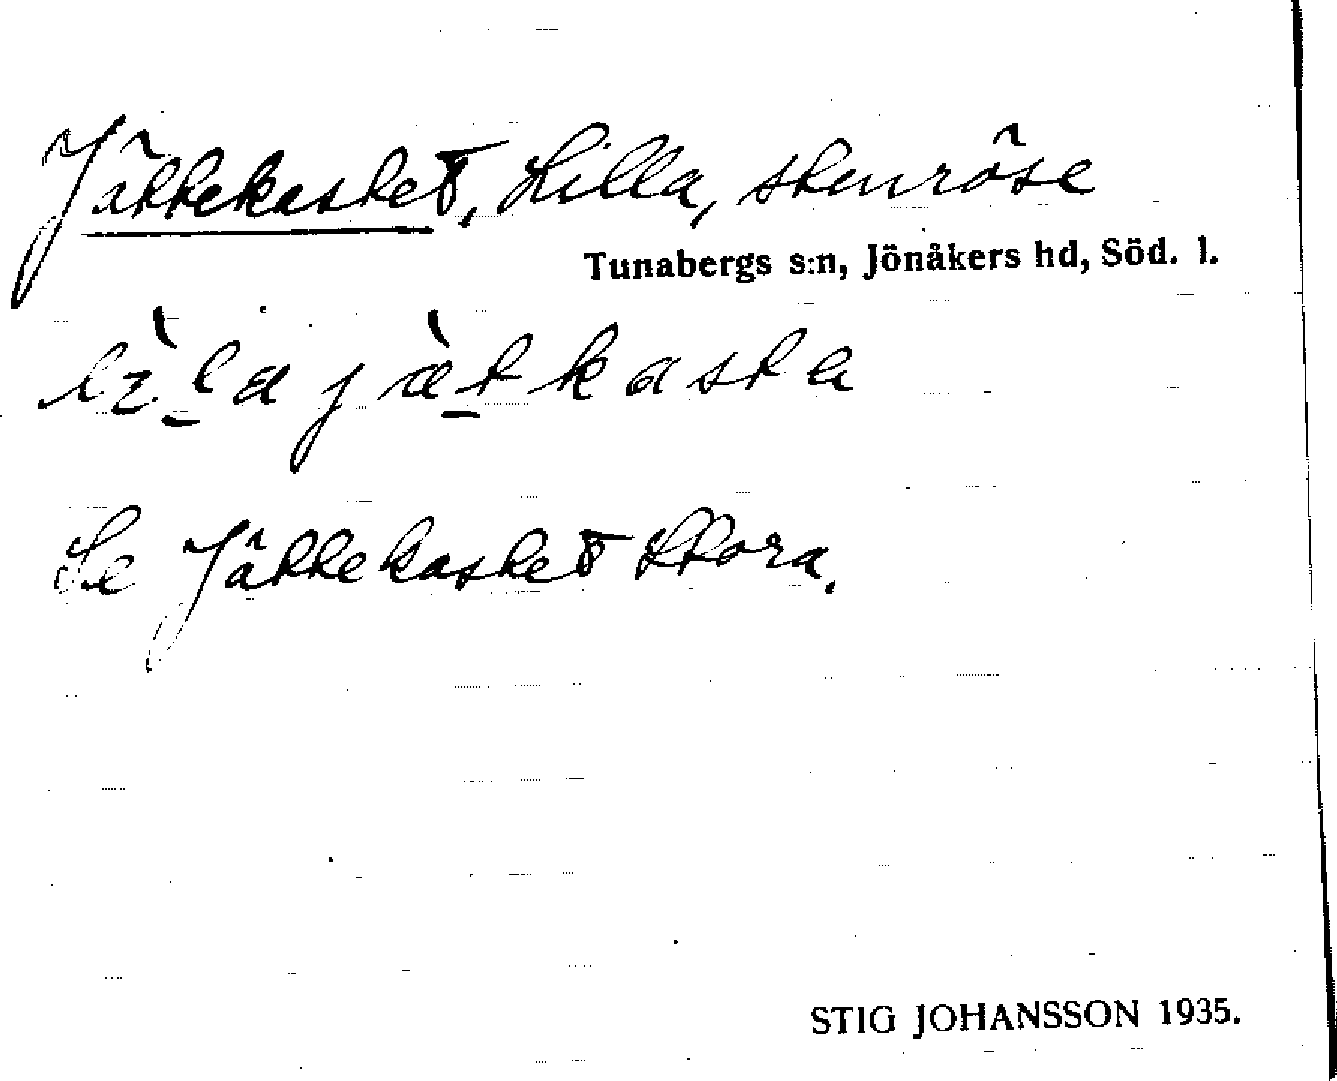 Jättekastet, Lilla, stenröse
Tunabergs s:n, Jönåkers hd, Söd. l.
lìla jæ̀tkasta
Se Jättekastet Stora.
STIG JOHANSSON 1935.